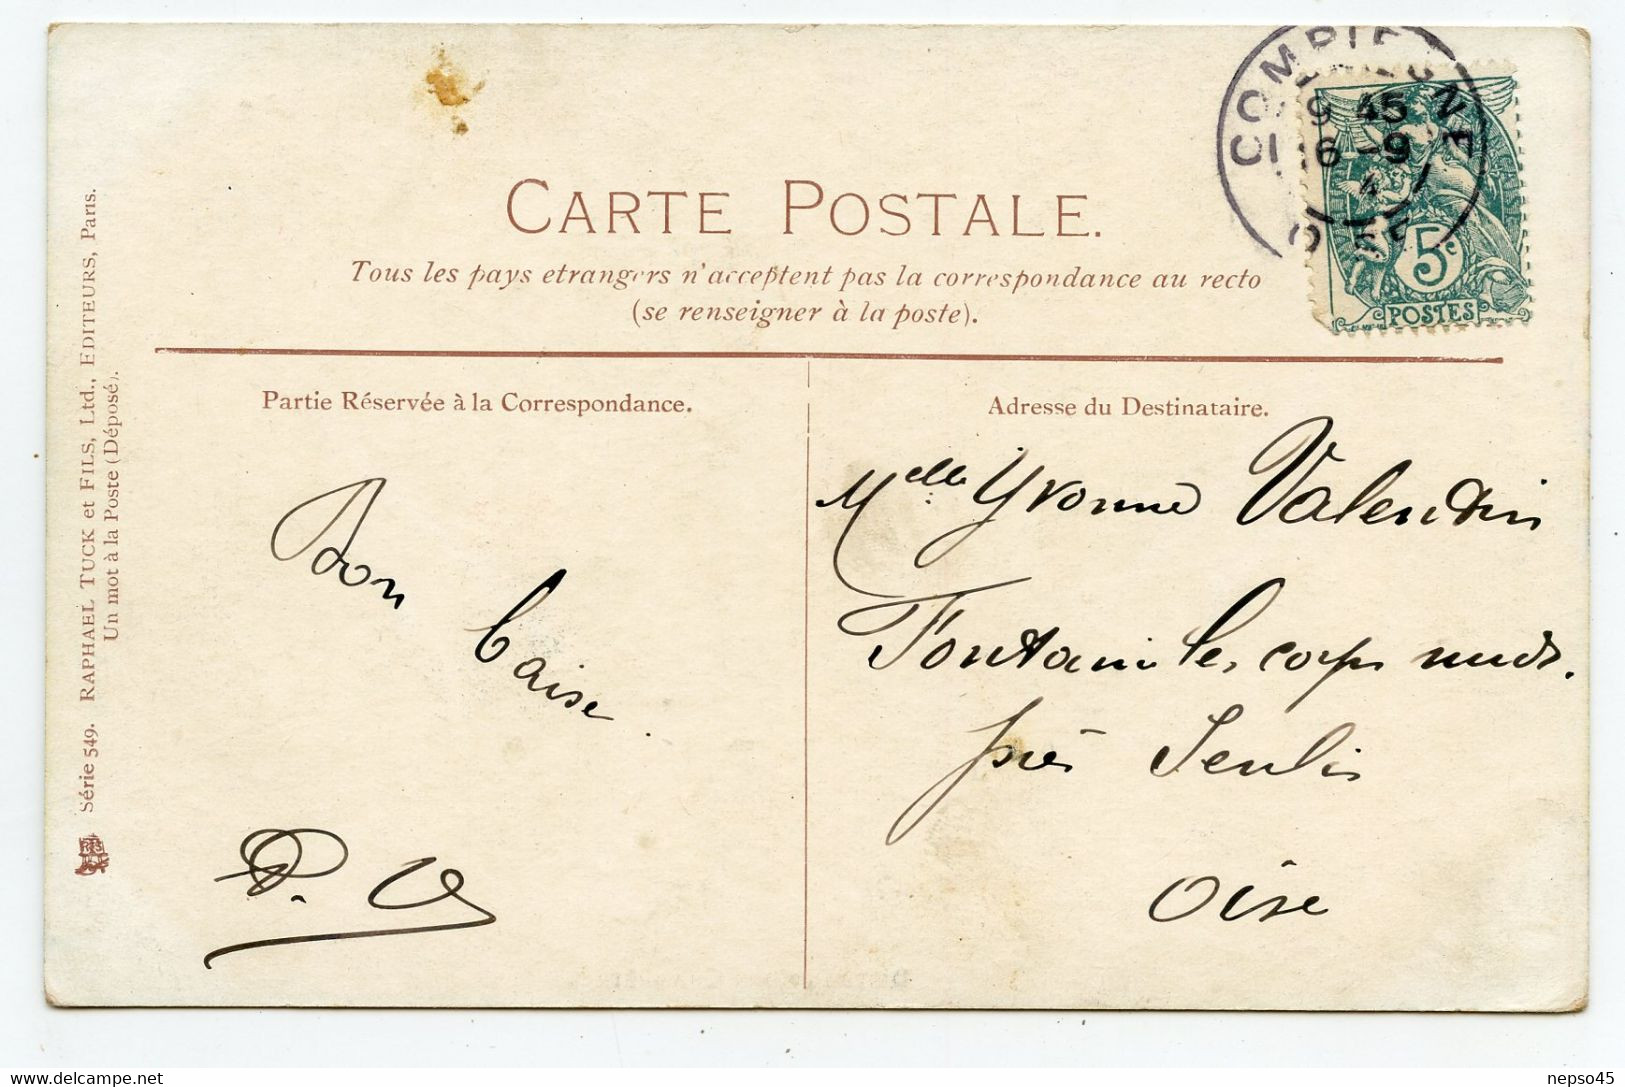 CARTE POSTALE.
Tous les pays etrangers n'acceptent pas la correspondance au recto
(se renseigner à la poste).
COMPIEGNE
9 45
16 -9
OISE
5c
POSTES
Partie Réservée à la Correspondance.
Bon
baise
P. V
Adresse du Destinataire.
Melle Yvonne Valentin
Fontaine les corps nuds.
près Senlis
Oise
Série 549. RAPHAEL TUCK et FILS, Ltd., EDITEURS, Paris.
Un mot à la Poste (Déposé).
delcampe.net
nepso45